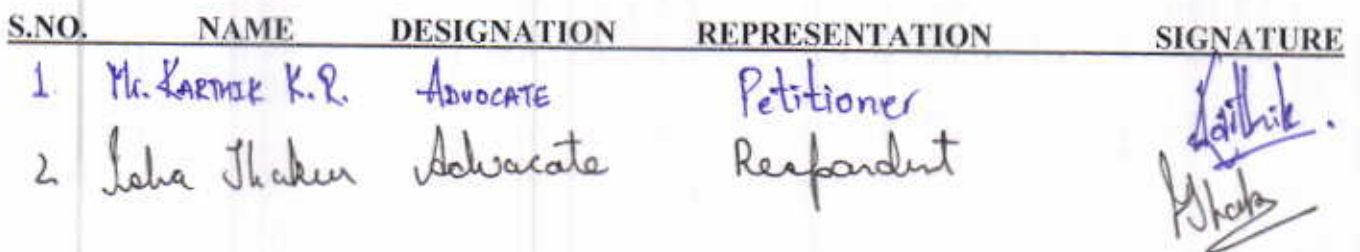 S.NO. NAME DESIGNATION REPRESENTATION SIGNATURE
1. Mr. KARTHIK K.R. ADVOCATE Petitioner Karthik.
2 Isha Thakur Advocate Respondent